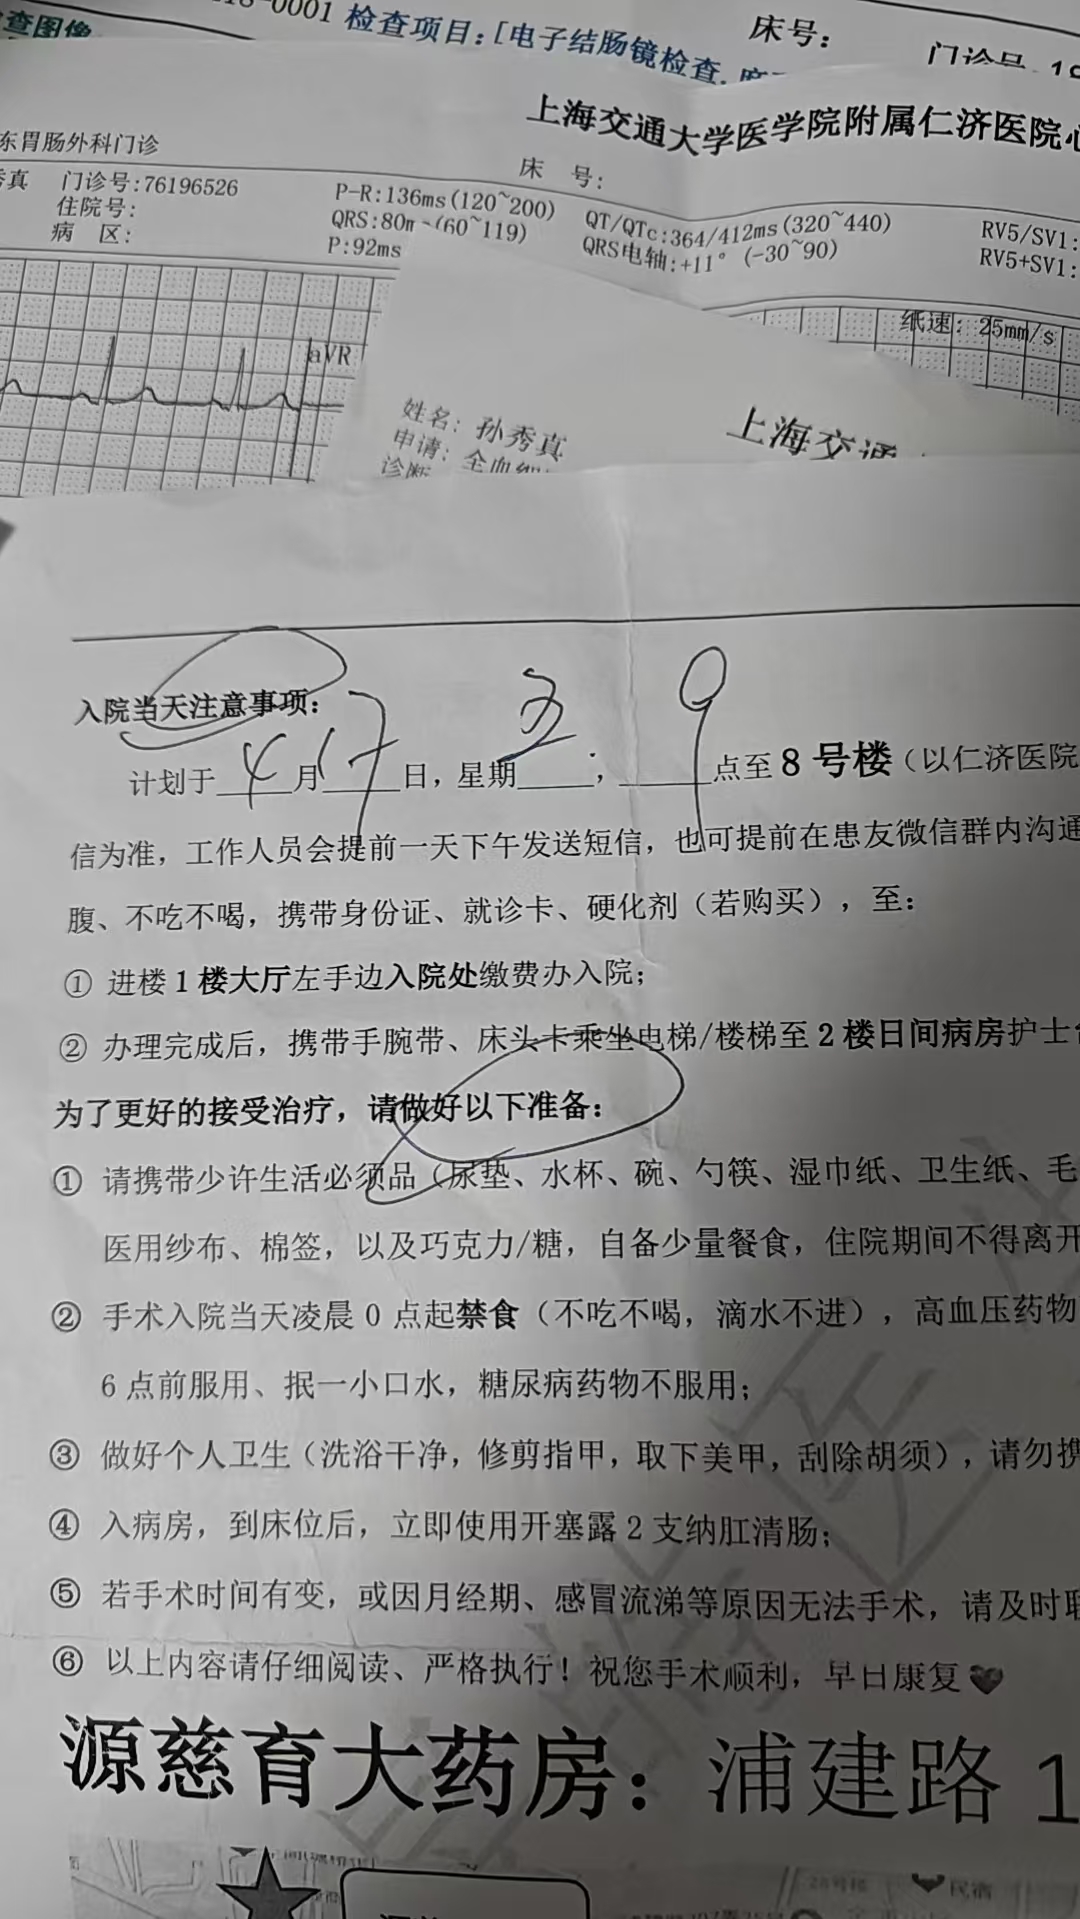 查图像
-0001 检查项目:[电子结肠镜检查,
床号:
门诊号
上海交通大学医学院附属仁济医院心
东胃肠外科门诊
床 号:
秀真 门诊号:76196526
住院号:
病 区:
P-R:136ms(120~200)
QRS:80m (60~119)
P:92ms
QT/QTc:364/412ms(320~440)
QRS电轴:+11°(-30~90)
RV5/SV1:
RV5+SV1:
纸速: 25mm/s
aVR
姓名: 孙秀真
申请: 全血细
诊断
上海交通
入院当天注意事项:
计划于 4 月 17 日,星期 五 ; 9 点至 8 号楼(以仁济医院
信为准,工作人员会提前一天下午发送短信,也可提前在患友微信群内沟通
腹、不吃不喝,携带身份证、就诊卡、硬化剂(若购买),至:
① 进楼 1 楼大厅左手边入院处缴费办入院;
② 办理完成后,携带手腕带、床头卡乘坐电梯/楼梯至 2 楼日间病房护士台
为了更好的接受治疗,请做好以下准备:
① 请携带少许生活必须品(尿垫、水杯、碗、勺筷、湿巾纸、卫生纸、毛
医用纱布、棉签,以及巧克力/糖,自备少量餐食,住院期间不得离开
② 手术入院当天凌晨 0 点起禁食(不吃不喝,滴水不进),高血压药物
6 点前服用、抿一小口水,糖尿病药物不服用;
③ 做好个人卫生(洗浴干净,修剪指甲,取下美甲,刮除胡须),请勿携
④ 入病房,到床位后,立即使用开塞露 2 支纳肛清肠;
⑤ 若手术时间有变,或因月经期、感冒流涕等原因无法手术,请及时联
⑥ 以上内容请仔细阅读、严格执行!祝您手术顺利,早日康复
源慈育大药房:浦建路 1
民宿